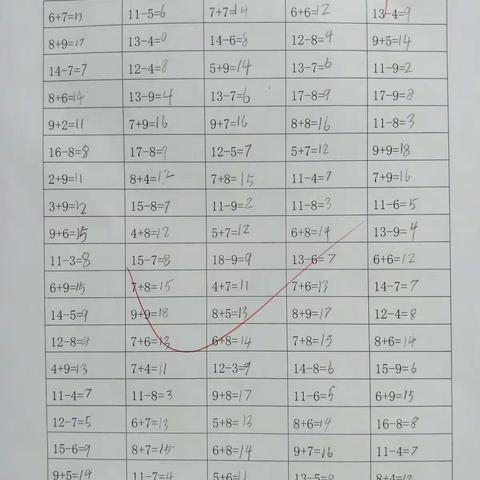 6+7=13 11-5=6 7+7=14 6+6=12 13-4=9
8+9=17 13-4=9 14-6=8 12-8=4 9+5=14
14-7=7 12-4=8 5+9=14 13-7=6 11-9=2
8+6=14 13-9=4 13-7=6 17-8=9 17-9=8
9+2=11 7+9=16 9+7=16 8+8=16 11-8=3
16-8=8 17-8=9 12-5=7 5+7=12 9+9=18
2+9=11 8+4=12 7+8=15 11-4=7 7+9=16
3+9=12 15-8=7 11-9=2 11-8=3 11-6=5
9+6=15 4+8=12 5+7=12 6+8=14 13-9=4
11-3=8 15-7=8 18-9=9 13-6=7 6+6=12
6+9=15 7+8=15 4+7=11 7+6=13 14-7=7
14-5=9 9+9=18 8+5=13 8+9=17 12-4=8
12-8=4 7+6=13 6+8=14 7+8=15 8+6=14
4+9=13 7+4=11 12-3=9 14-8=6 15-9=6
11-4=7 11-8=3 9+8=17 11-6=5 6+9=15
12-7=5 6+7=13 5+8=13 8+6=14 16-8=8
15-6=9 8+7=15 6+8=14 9+7=16 11-4=7
9+5=14 11-7=4 5+6=11 13-5=8 8+4=12